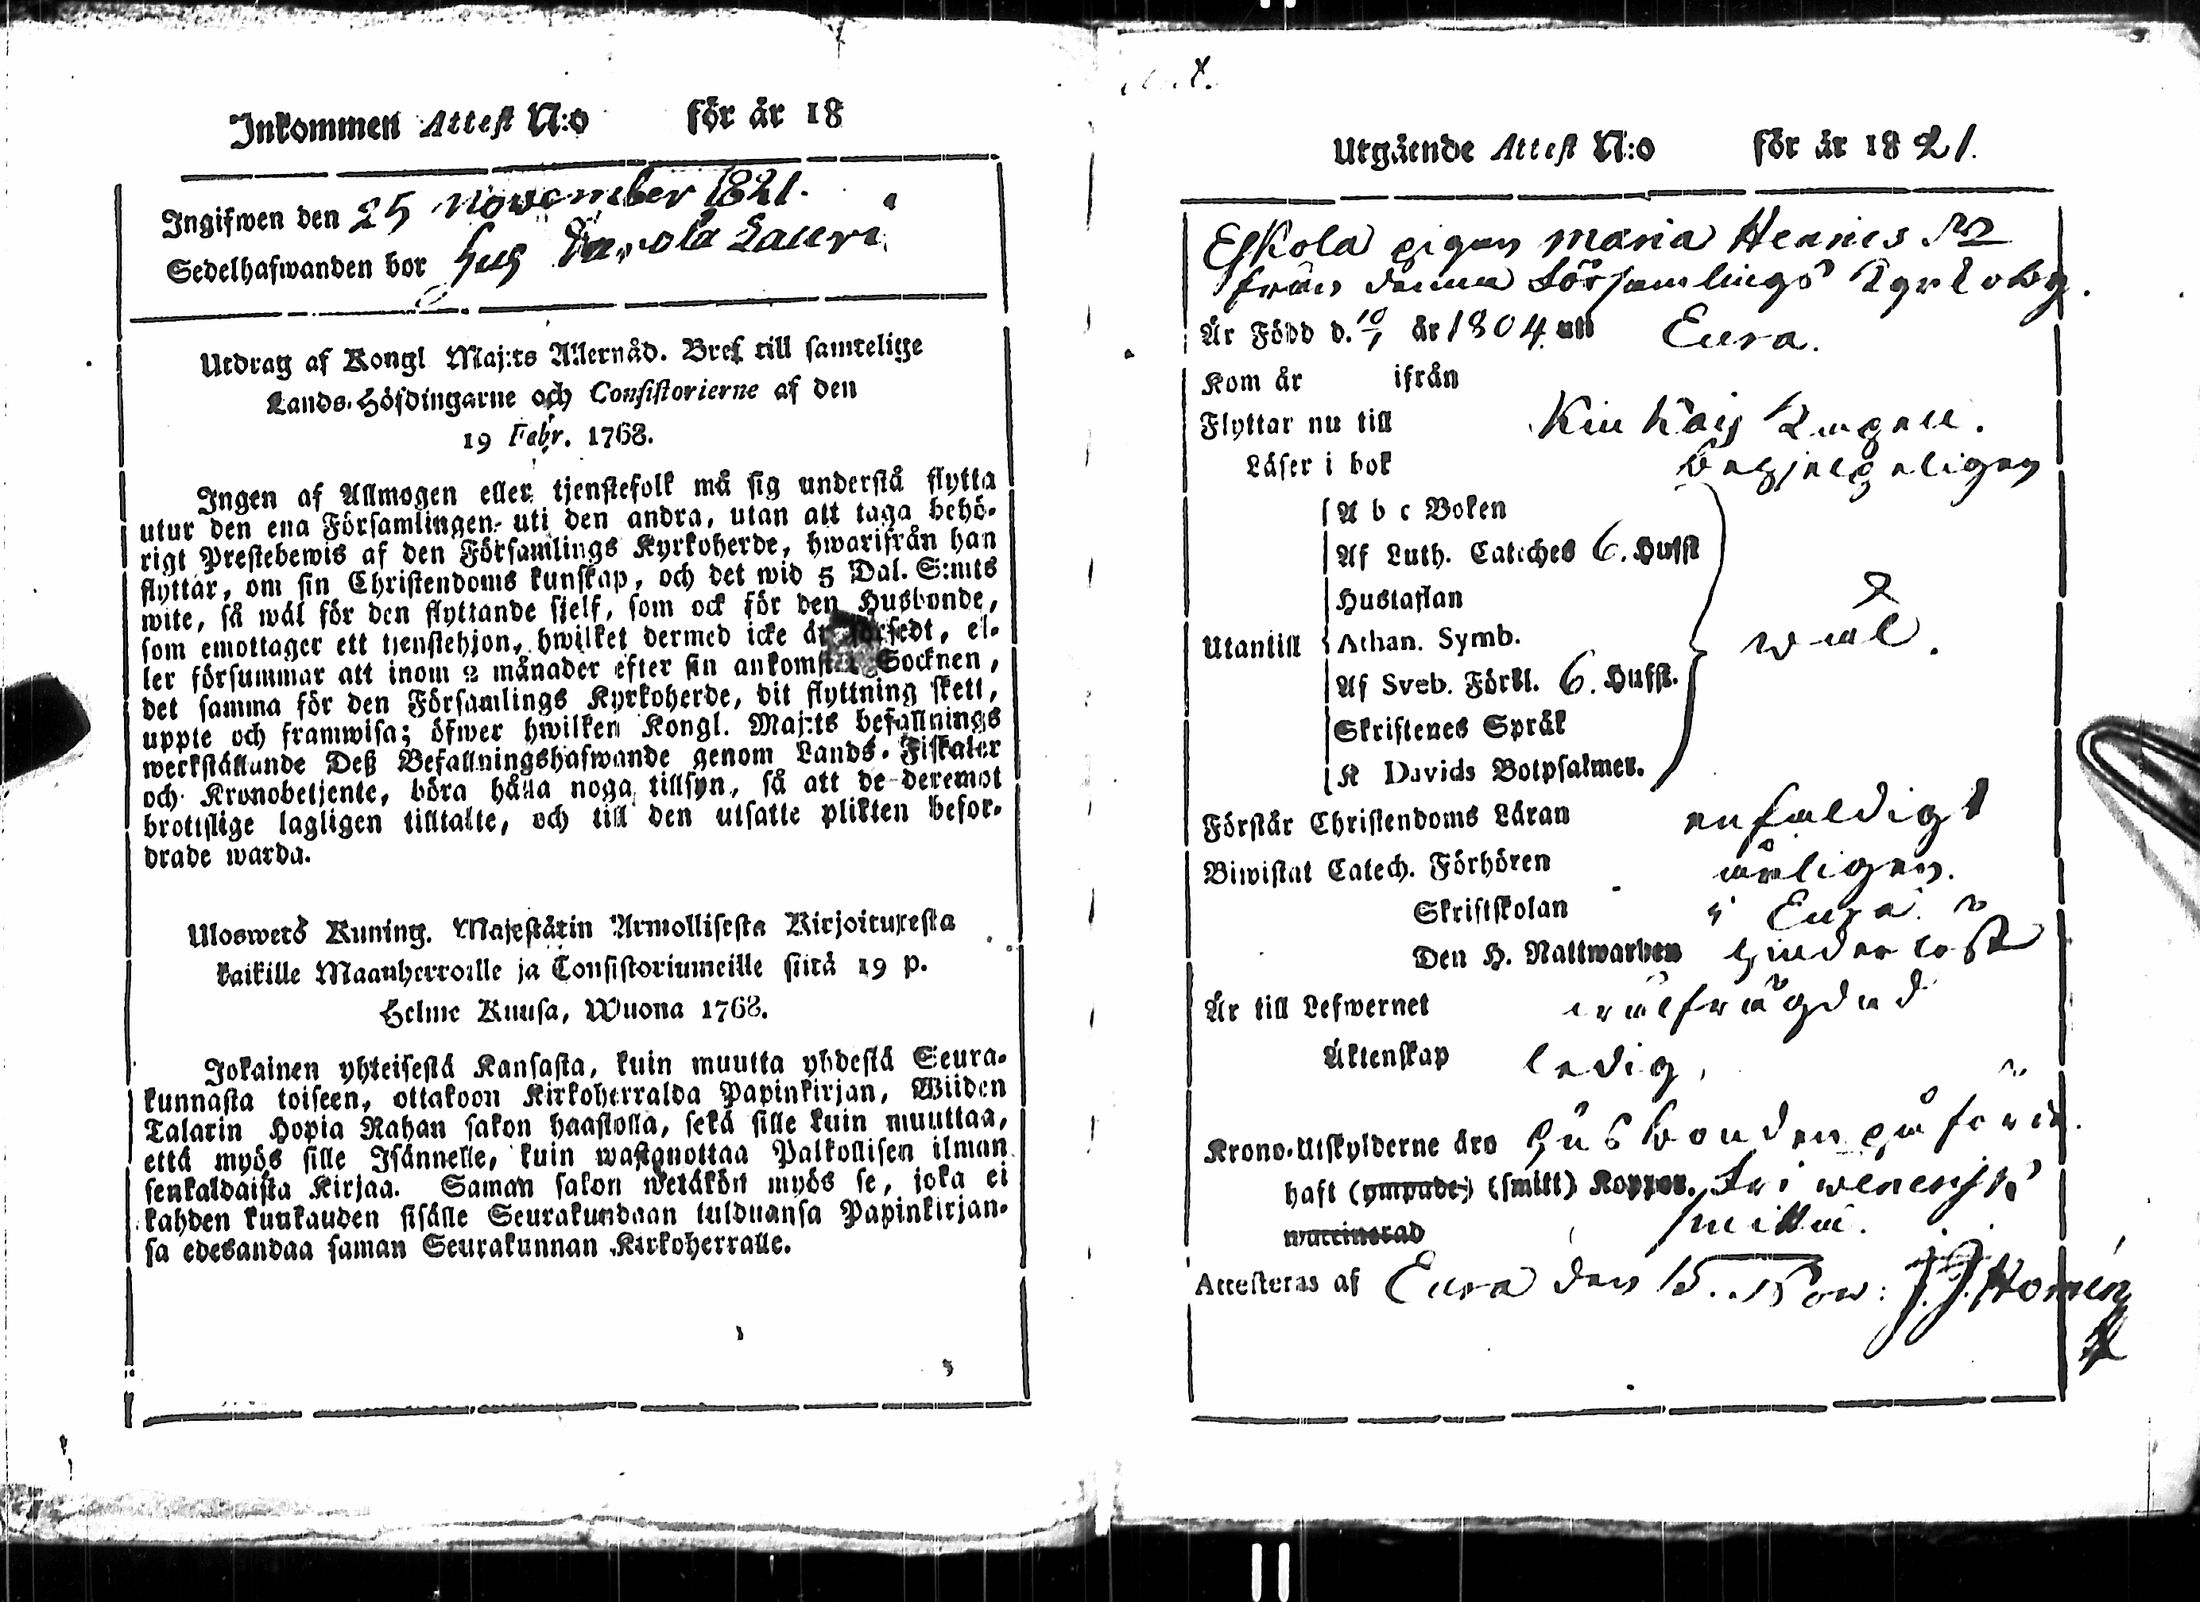 Inkommen Attest N:o för år 18
Ingifwen den 25 November 1821.
Sedelhafwanden bor hus Lauri
Utdrag af Kongl Maj:ts Allernåd. Bref till samtelige
Lands-Höfdingarne och Consistorierne af den
19 Febr. 1768.
Ingen af Allmogen eller tjenstefolk må sig understå flytta
utur den ena Församlingen uti den andra, utan att taga behö-
rigt Prestebewis af den Församlings Kyrkoherde, hwarifrån han
flyttar, om sin Christendoms kunskap, och det wid 5 Dal. S:mts
wite, så wäl för den flyttande sjelf, som ock för den Husbonde,
som emottager ett tjenstehjon, hwilket dermed icke är försedt, el-
ler försummar att inom 2 månader efter sin ankomst Socknen,
det samma för den Församlings Kyrkoherde, dit flyttning skett,
uppte och framwisa; öfwer hwilken Kongl. Maj:ts befallnings
werkställande Deß Befallningshafwande genom Lands-Fiskaler
och Kronobetjente, böra hålla noga tillsyn, så att de deremot
brottslige lagligen tilltalte, och till den utsatte plikten befor-
drade warda.
Uloswetö Kuning. Majestätin Armollisesta Kirjoituxesta
kaikille Maanherroille ja Consistoriumeille siitä 19 p.
Helme Kuusa, Wuona 1768.
Jokainen yhteisestä Kansasta, kuin muutta yhdestä Seura-
kunnasta toiseen, ottakoon Kirkoherralda Papinkirjan, Wiiden
Talarin Hopia Rahan sakon haastolla, sekä sille kuin muuttaa,
että myös sille Isännelle, kuin wastanottaa Palkollisen ilman
senkaldaista Kirjaa. Saman sakon wetäkön myös se, joka ei
kahden kuukauden sisälle Seurakundaan tulduansa Papinkirjan-
sa edesandaa saman Seurakunnan Kirkoherralle.
Utgående Attest N:o för år 1821.
Eskola pigan Maria Henrics Dr
från denna Församlings Kyrkoby.
Är Född d. 10/1 år 1804 uti Eura.
Kom år ifrån
Flyttar nu till Kiukais Kapell.
Läser i bok behjelpeligen
A b c Boken
Af Luth. Cateches 6. Hufst
Hustaflan
Utantill Athan. Symb. wäl.
Af Sveb. Förkl. 6. Hufst.
Skriftenes Språk
K Davids Botpsalmer.
Förstår Christendoms Läran enfaldigt
Biwistat Catech. Förhören årligen.
Skriftskolan i Eura
Den H. Nattwarden hinderlöst
Är till Lefwernet wälfrägdad
Äktenskap ledig,
Krono-Utskylderne äro husbonden påförde.
haft (ympade) (smitt) Koppor. Fri wenerisk
waccinerad smitta.
Attesteras af Eura den 15. Now: J. J. Homén